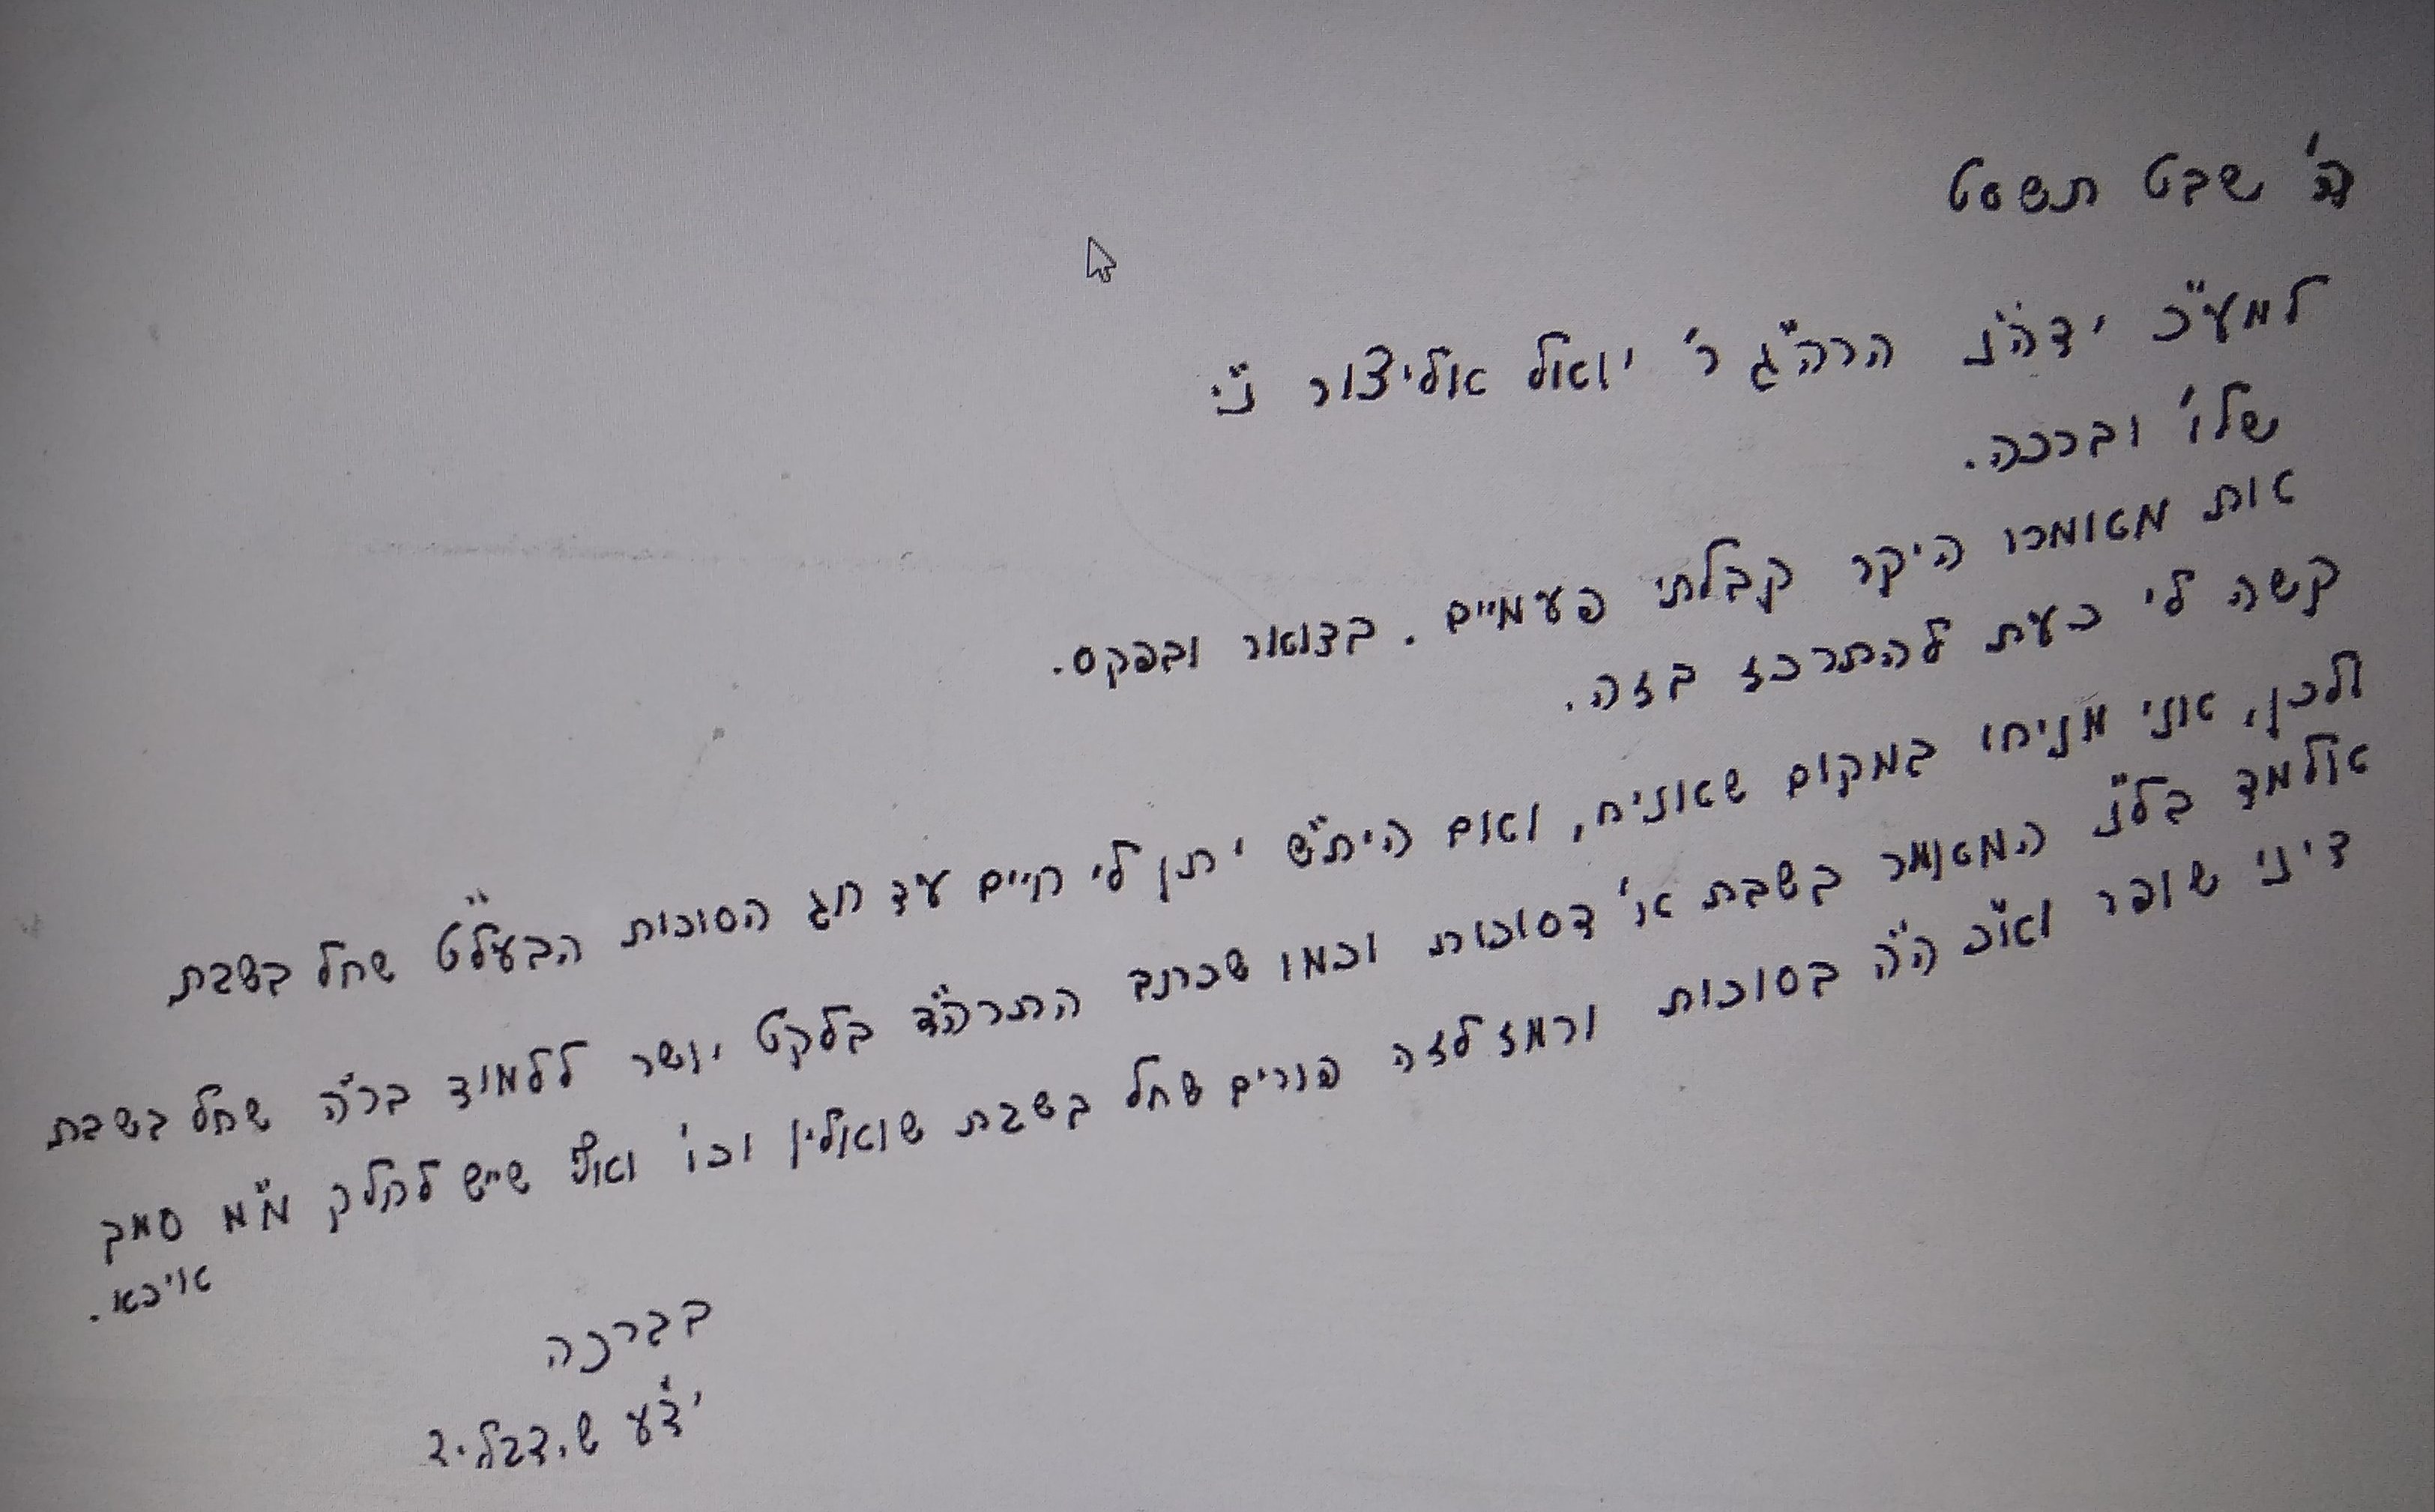 ה' שבט תשסט
למע"כ ידה"נ הרה"ג ר' יואל אליצור נ"י
שלו' וברכה.
את מאמרו היקר קבלתי פעמיים. בדואר ובפקס.
קשה לי כעת להתרכז בזה.
ולכן, אני מניחו במקום שאניח, ואם הית"ש יתן לי חיים עד חג הסוכות הבעל"ט שחל בשבת
אלמד בל"נ המאמר בשבת א' דסוכות וכמו שכתב התרה"ד בלקט יושר ללמוד בר"ה שחל בשבת
דיני שופר וא"כ ה"ה בסוכות ורמז לזה פורים שחל בשבת שואלין וכו' ואף שיש לחלק מ"מ סמך
איכא.
בברכה
יד"ע ש. דבליצקי